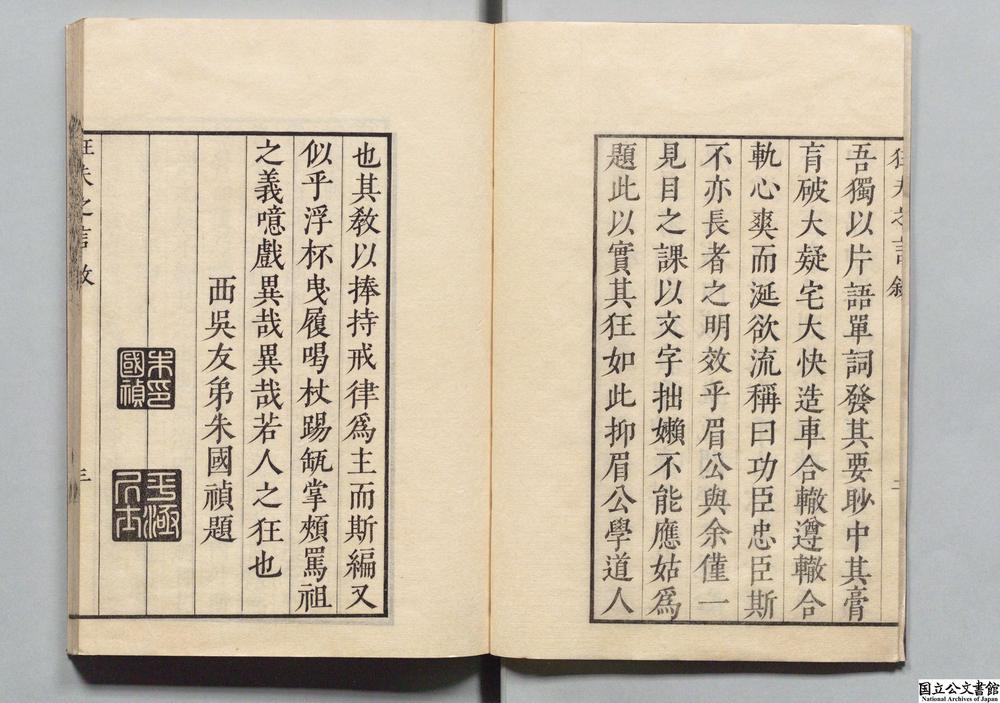 狂夫之言敘
二
吾獨以片語單詞發其要眇中其膏
肓破大疑宅大快造車合轍遵轍合
軌心爽而涎欲流稱曰功臣忠臣斯
不亦長者之明效乎眉公與余僅一
見目之課以文字拙嬾不能應姑為
題此以實其狂如此抑眉公學道人
也其教以捧持戒律為主而斯編又
似乎浮杯曳履喝杖踢缻掌頰罵祖
之義噫戲異哉異哉若人之狂也
西吳友弟朱國禎題
朱印國禎
狂夫之言敘
三
国立公文書館
National Archives of Japan